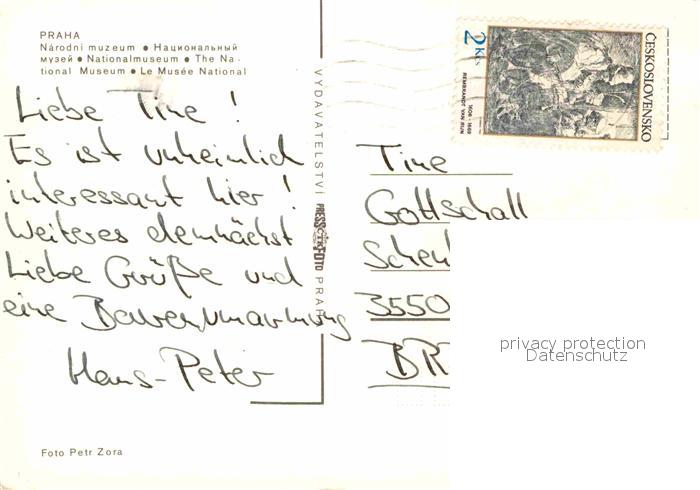 PRAHA
Národní muzeum ● Национальный
музей ● Nationalmuseum ● The Na-
tional Museum ● Le Musée National
Liebe Tine !
Es ist unheimlich
interessant hier !
Weiteres demnächst
Liebe Grüße und
eine Bärenumarmung
Hans-Peter
Foto Petr Zora
VYDAVATELSTVÍ PRESSFOTO PRAHA
2 Kčs
ČESKOSLOVENSKO
1606-1669
REMBRANDT VAN RIJN
Tine
Gottschall
3550
privacy protection
Datenschutz